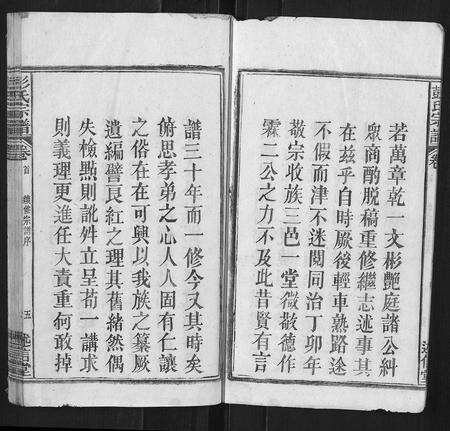 彭氏宗譜
卷
若萬章乾一文彬艷庭諸公糾
眾商酌脫稿重修繼志述事其
在茲乎自時厥後輕車熟路途
不假而津不迷閱同治丁卯年
敬宗收族三邑一堂微敬德作
霖二公之力不及此昔賢有言
譜三十年而一修今又其時矣
俯思孝弟之心人人固有仁讓
之俗在在可興以我族之纂厥
遺編譬長紅之理其舊緒然偶
失檢點則訛舛立呈苟一講求
則義理更進任大責重何敢掉
彭氏宗譜
卷首
五